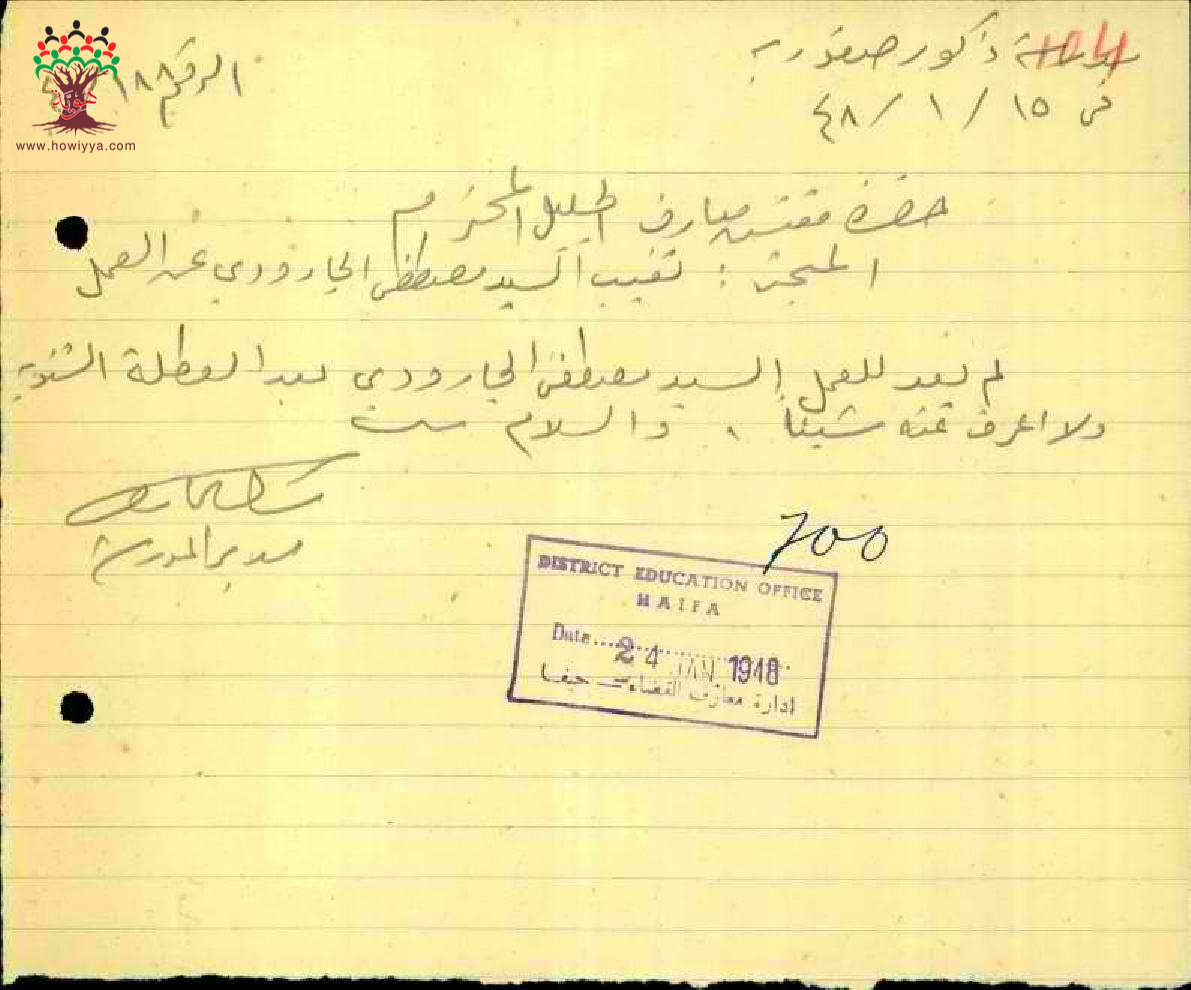 مدرسة ذكور صفورية
الرقم ١٨٨
في ١٥ / ١ / ٤٨
www.howiyya.com
حضرة مفتش معارف الجليل المحترم
المبحث : تغيب السيد مصطفى الجارودي عن العمل
لم يعد للعمل السيد مصطفى الجارودي بعد العطلة الشتوية
ولا اعرف عنه شيئا . والسلام
مدير المدرسة
700
DISTRICT EDUCATION OFFICE
HAIFA
Date....24 JAN 1948
ادارة معارف القضاء — حيفا